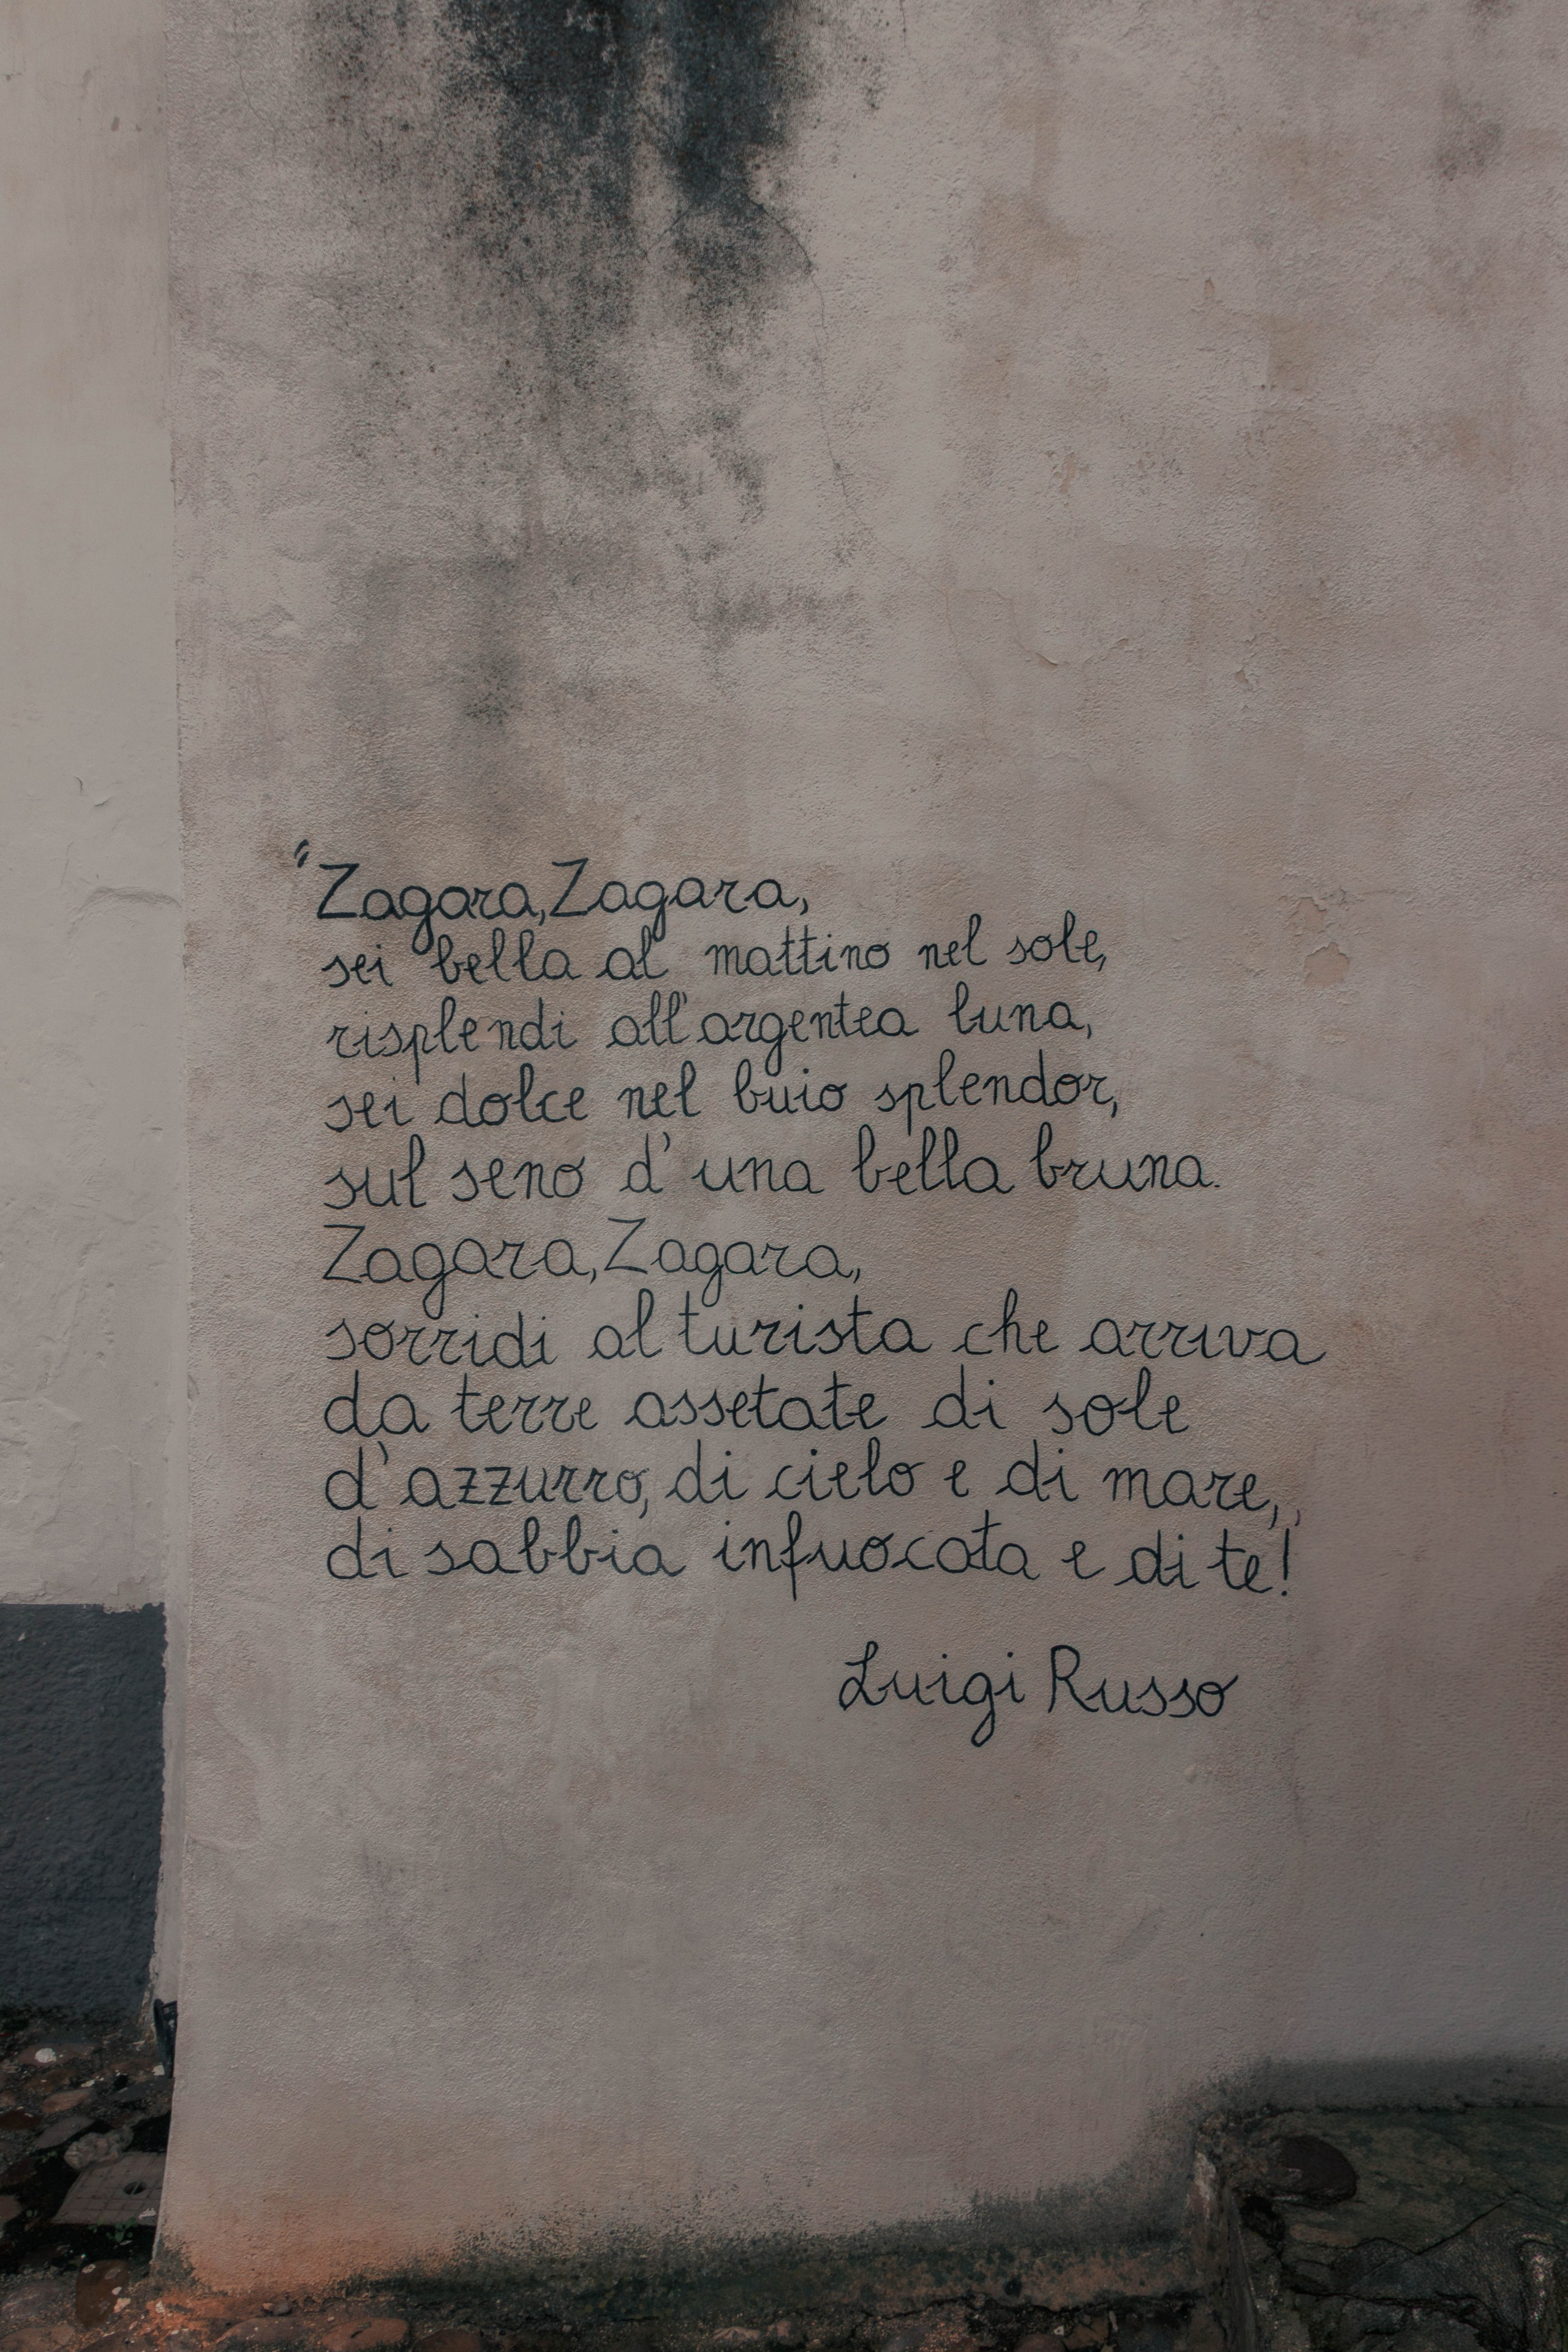 “Zagara, Zagara,
sei bella al mattino nel sole,
risplendi all'argentea luna,
sei dolce nel buio splendor,
sul seno d'una bella bruna.
Zagara, Zagara,
sorridi al turista che arriva
da terre assetate di sole
d'azzurro, di cielo e di mare,
di sabbia infuocata e di te!
Luigi Russo